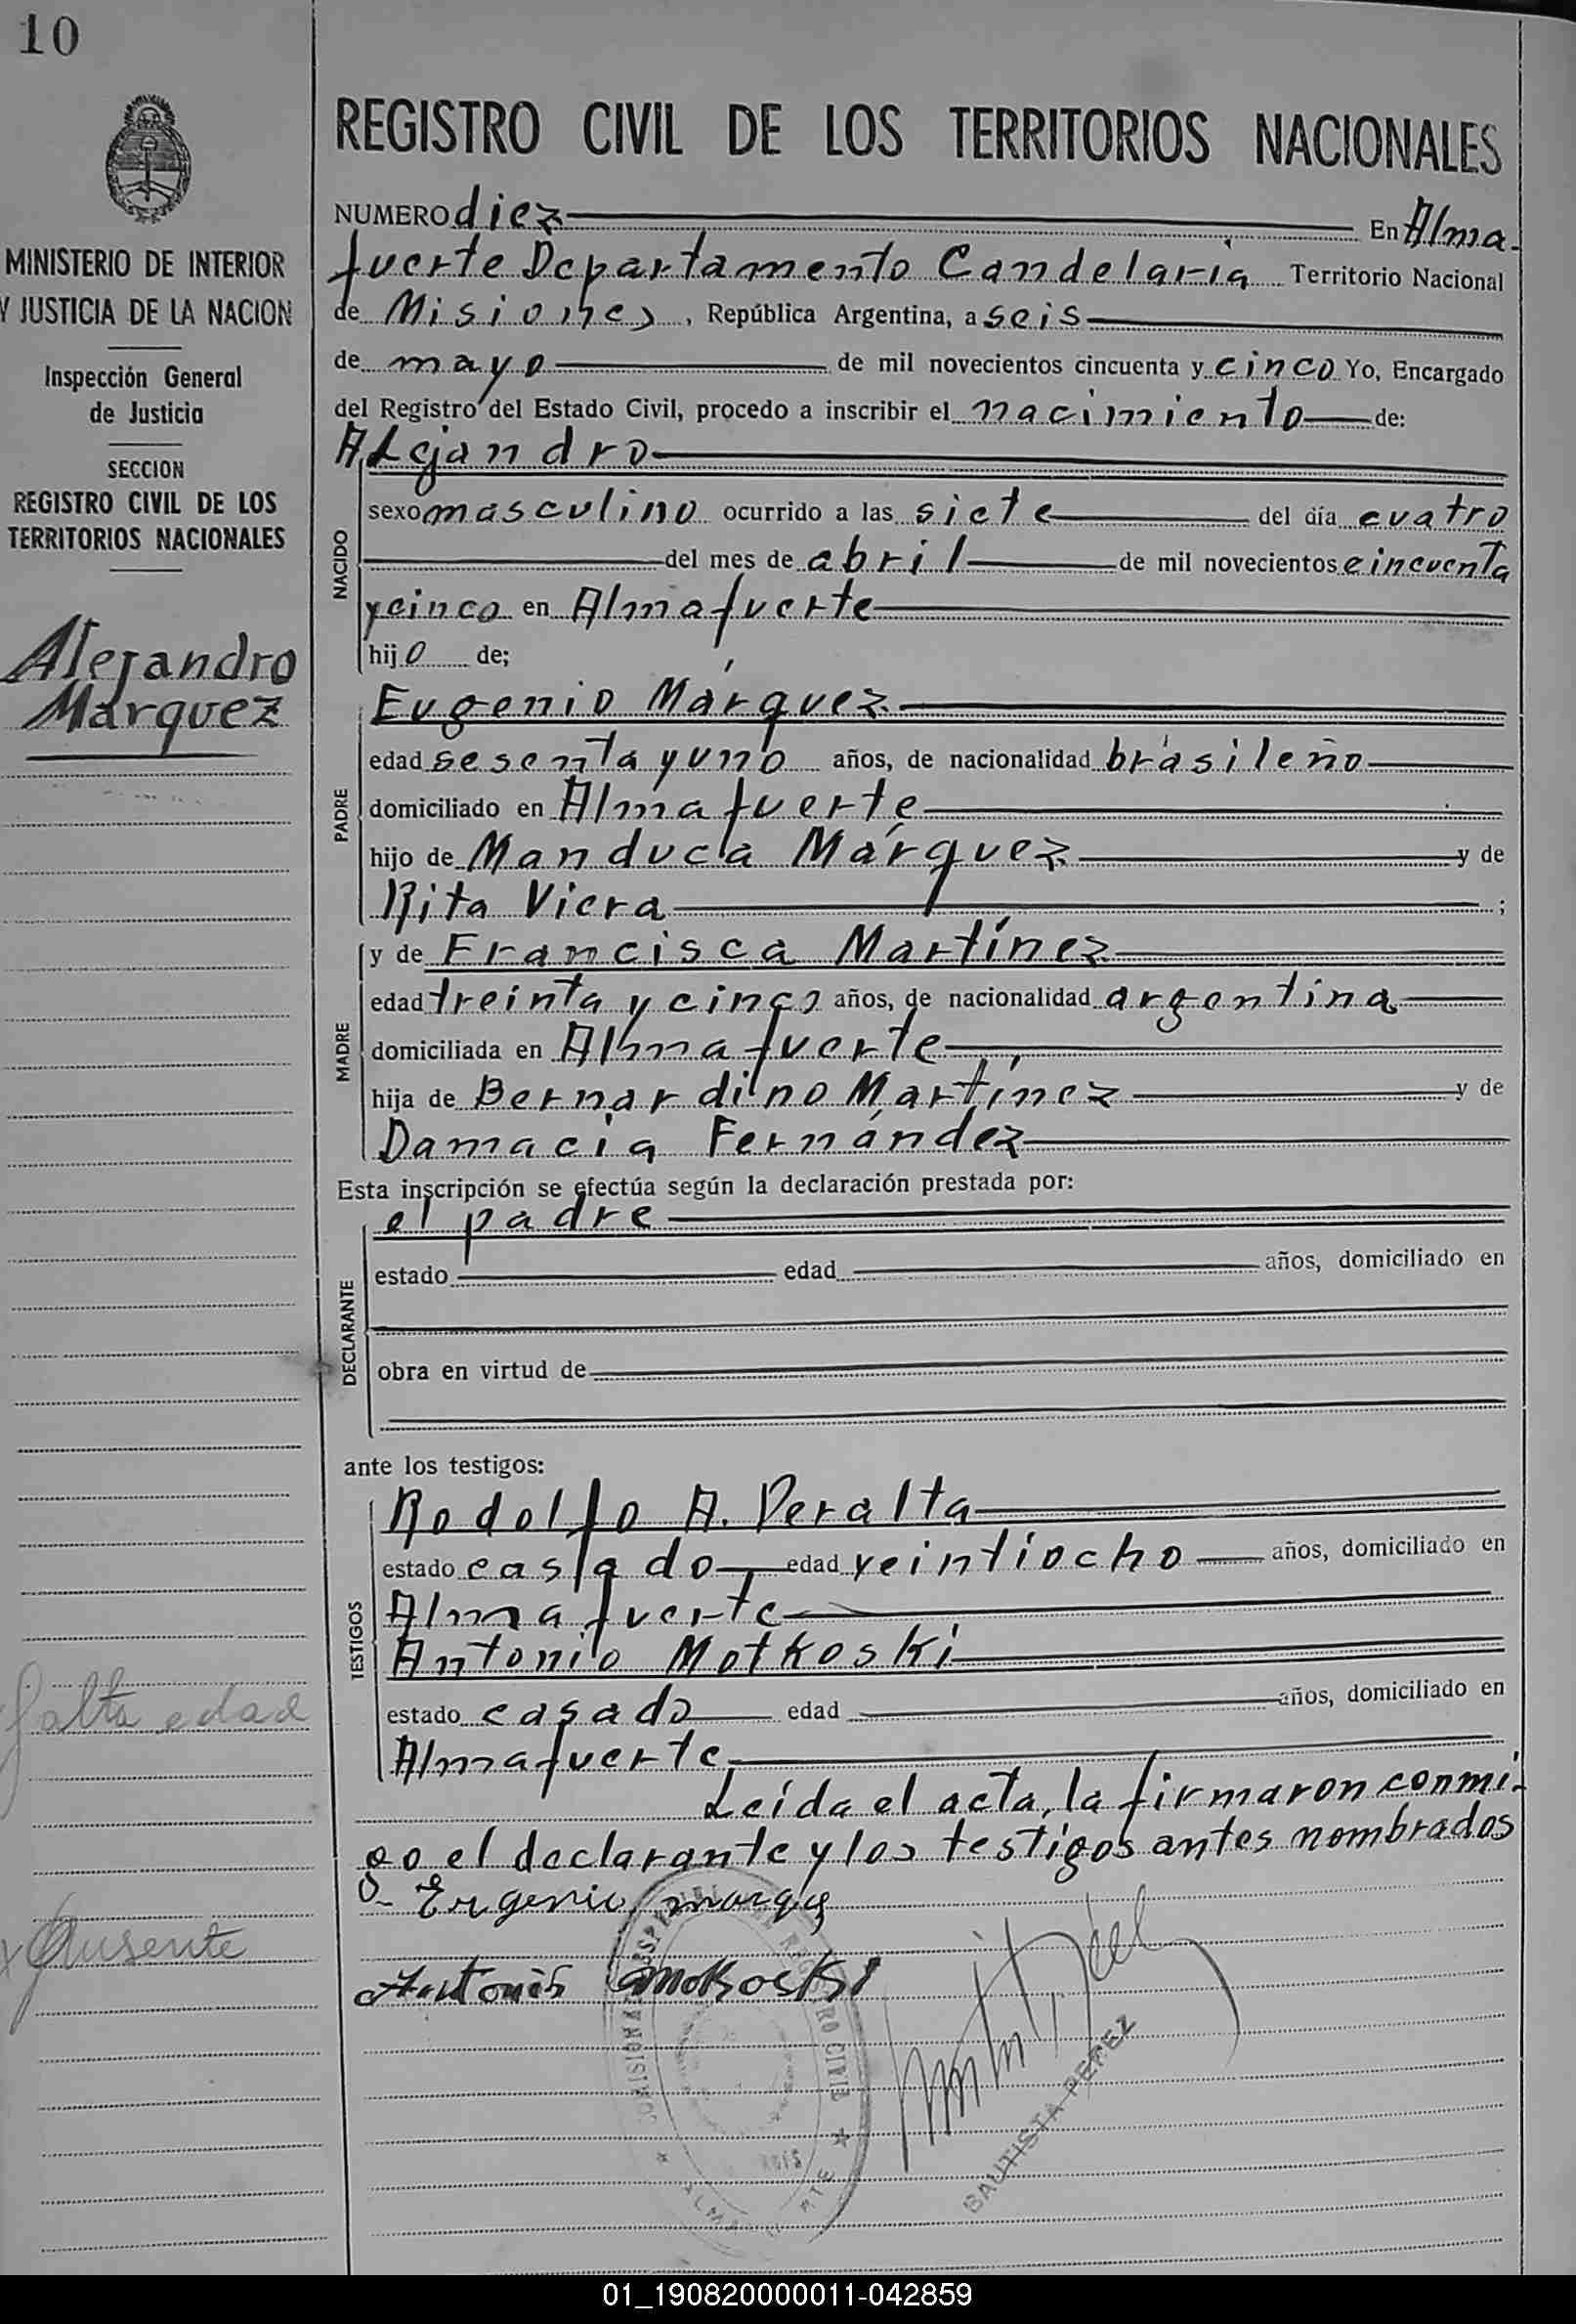 10
MINISTERIO DE INTERIOR
Y JUSTICIA DE LA NACION
Inspección General
de Justicia
SECCION
REGISTRO CIVIL DE LOS
TERRITORIOS NACIONALES
Alejandro
Márquez
falta edad
Ausente
REGISTRO CIVIL DE LOS TERRITORIOS NACIONALES
NUMERO diez En Alma-
fuerte Departamento Candelaria Territorio Nacional
de Misiones, República Argentina, a seis
de mayo de mil novecientos cincuenta y cinco Yo, Encargado
del Registro del Estado Civil, procedo a inscribir el nacimiento de:
Alejandro
NACIDO
sexo masculino ocurrido a las siete del día cuatro
del mes de abril de mil novecientos cincuenta
y cinco en Almafuerte
hijo de;
PADRE
Eugenio Márquez
edad sesenta y uno años, de nacionalidad brasileño
domiciliado en Almafuerte
hijo de Manduca Márquez y de
Rita Viera ;
MADRE
y de Francisca Martínez
edad treinta y cinco años, de nacionalidad argentina
domiciliada en Almafuerte
hija de Bernardino Martínez y de
Damacia Fernández
Esta inscripción se efectúa según la declaración prestada por:
el padre
DECLARANTE
estado edad años, domiciliado en
obra en virtud de
ante los testigos:
TESTIGOS
Rodolfo A. Peralta
estado casado edad veintiocho años, domiciliado en
Almafuerte
Antonio Motkoski
estado casado edad años, domiciliado en
Almafuerte
Leída el acta, la firmaron conmi-
go el declarante y los testigos antes nombrados
Eugenio
Antonio
REGISTRO CIVIL
BAUTISTA PEREZ
01_190820000011-042859